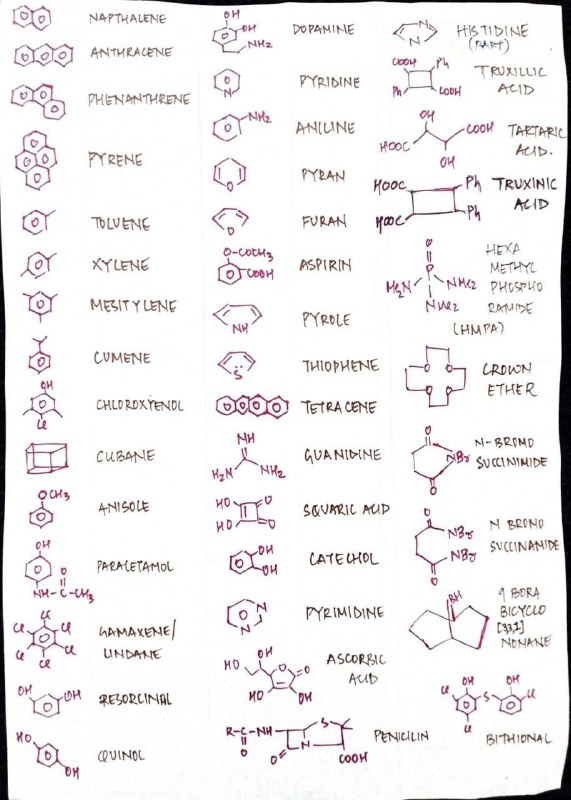 NAPTHALENE
ANTHRACENE
PHENANTHRENE
PYRENE
TOLUENE
XYLENE
MESITYLENE
CUMENE
OH
Cl
CHLOROXYENOL
CUBANE
OCH3
ANISOLE
OH
O
NH-C-CH3
PARACETAMOL
Cl
Cl Cl
Cl Cl
Cl
GAMAXENE/
LINDANE
OH OH
RESORCINAL
HO
OH
QUINOL
OH
OH
NH2
DOPAMINE
N
PYRIDINE
NH2
ANILINE
O
PYRAN
O
FURAN
O-COCH3
COOH
ASPIRIN
NH
PYROLE
S
THIOPHENE
TETRACENE
NH
H2N NH2
GUANIDINE
HO O
HO O
SQUARIC ACID
OH
OH
CATECHOL
N
N
PYRIMIDINE
OH
HO O O
HO OH
ASCORBIC
ACID
R-C-NH S
O O N
COOH
PENICILIN
N
N
HISTIDINE
(PART)
COOH Ph
Ph COOH
TRUXILLIC
ACID
OH
HOOC COOH
OH
TARTARIC
ACID.
HOOC Ph
HOOC Ph
TRUXINIC
ACID
O
P
Me2N NMe2
NMe2
HEXA
METHYL
PHOSPHO
RAMIDE
(HMPA)
O O
O O
CROWN
ETHER
O
NBr
O
N-BROMO
SUCCINIMIDE
O
NBr
NBr
O
N BROMO
SUCCINAMIDE
BH
9 BORA
BICYCLO
[3,3,1]
NONANE
Cl OH OH Cl
S
Cl
BITHIONAL